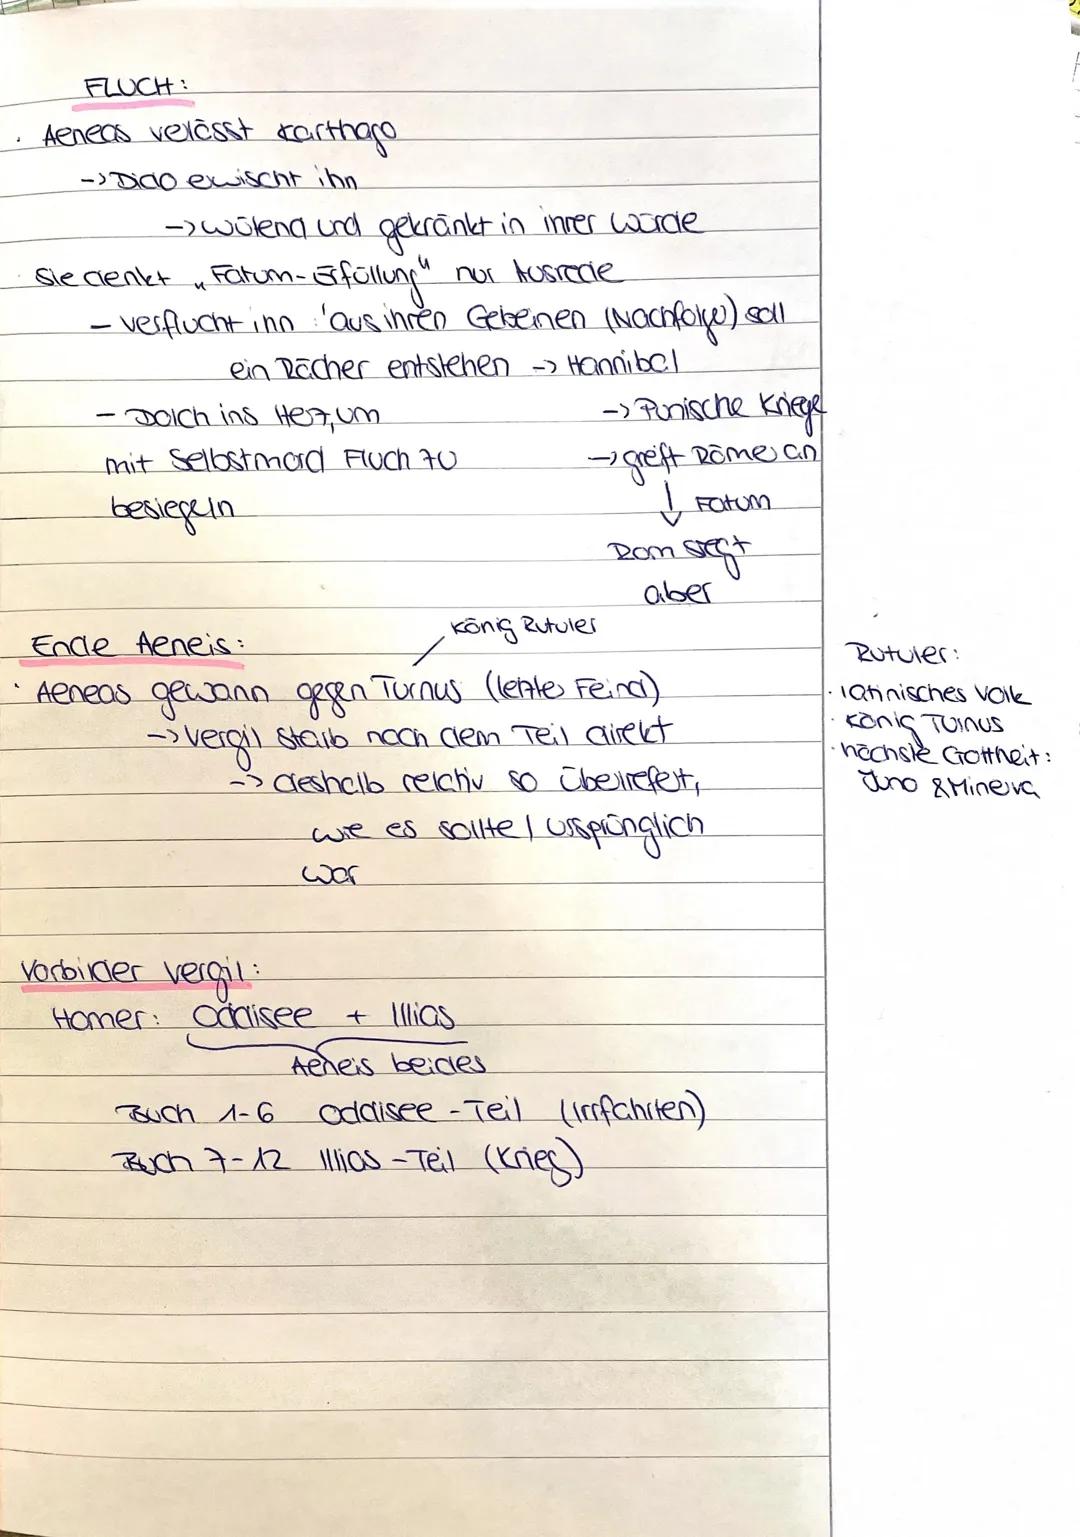 FLUCH:
· Aeneas verlässt Karthago
-> Dido erwischt ihn
-> wütend und gekränkt in ihrer Würde
· Sie denkt „Fatum-Erfüllung" nur Ausrede
- verflucht ihn: 'aus ihren Gebeinen (Nachfolge) soll
ein Rächer entstehen -> Hannibal
- Dolch ins Herz, um
mit Selbstmord Fluch zu
besiegeln
-> Punische Kriege
-> greift Römer an
↓ Fatum
Rom siegt
aber
König Rutuler
Ende Aeneis:
· Aeneas gewann gegen Turnus (letzter Feind)
-> Vergil starb nach dem Teil direkt
-> deshalb relativ so überliefert,
wie es sollte / ursprünglich
war
Rutuler:
· latinisches Volk
· König Turnus
· höchste Gottheit:
Juno & Minerva
Vorbilder Vergil:
Homer: Oddisee + Illias
Aeneis beides
Buch 1-6 Oddisee-Teil (Irrfahrten)
Buch 7-12 Illias-Teil (Krieg)